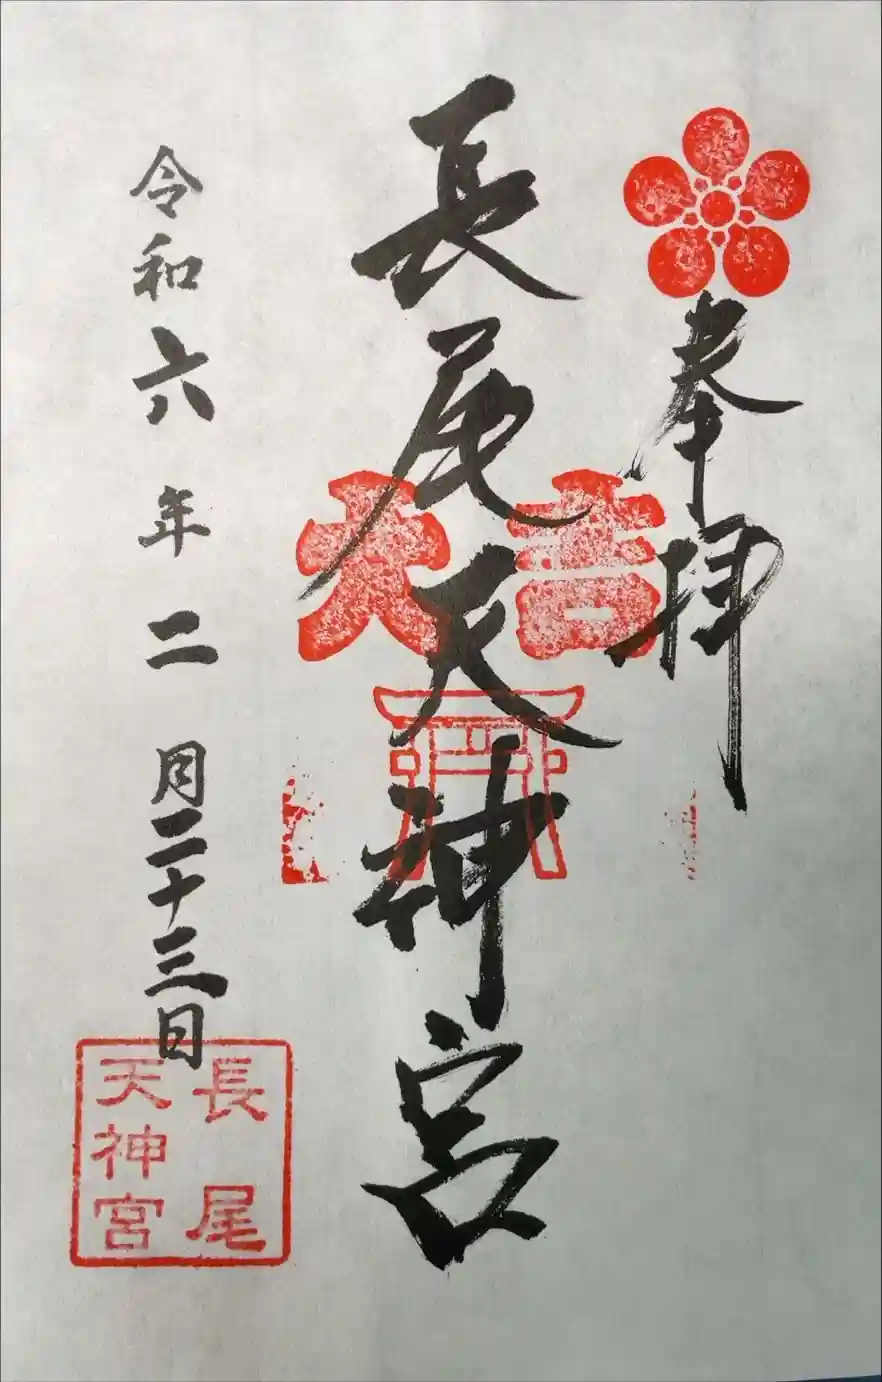 奉拝
長尾天神宮
令和六年二月二十三日
長尾
天神宮